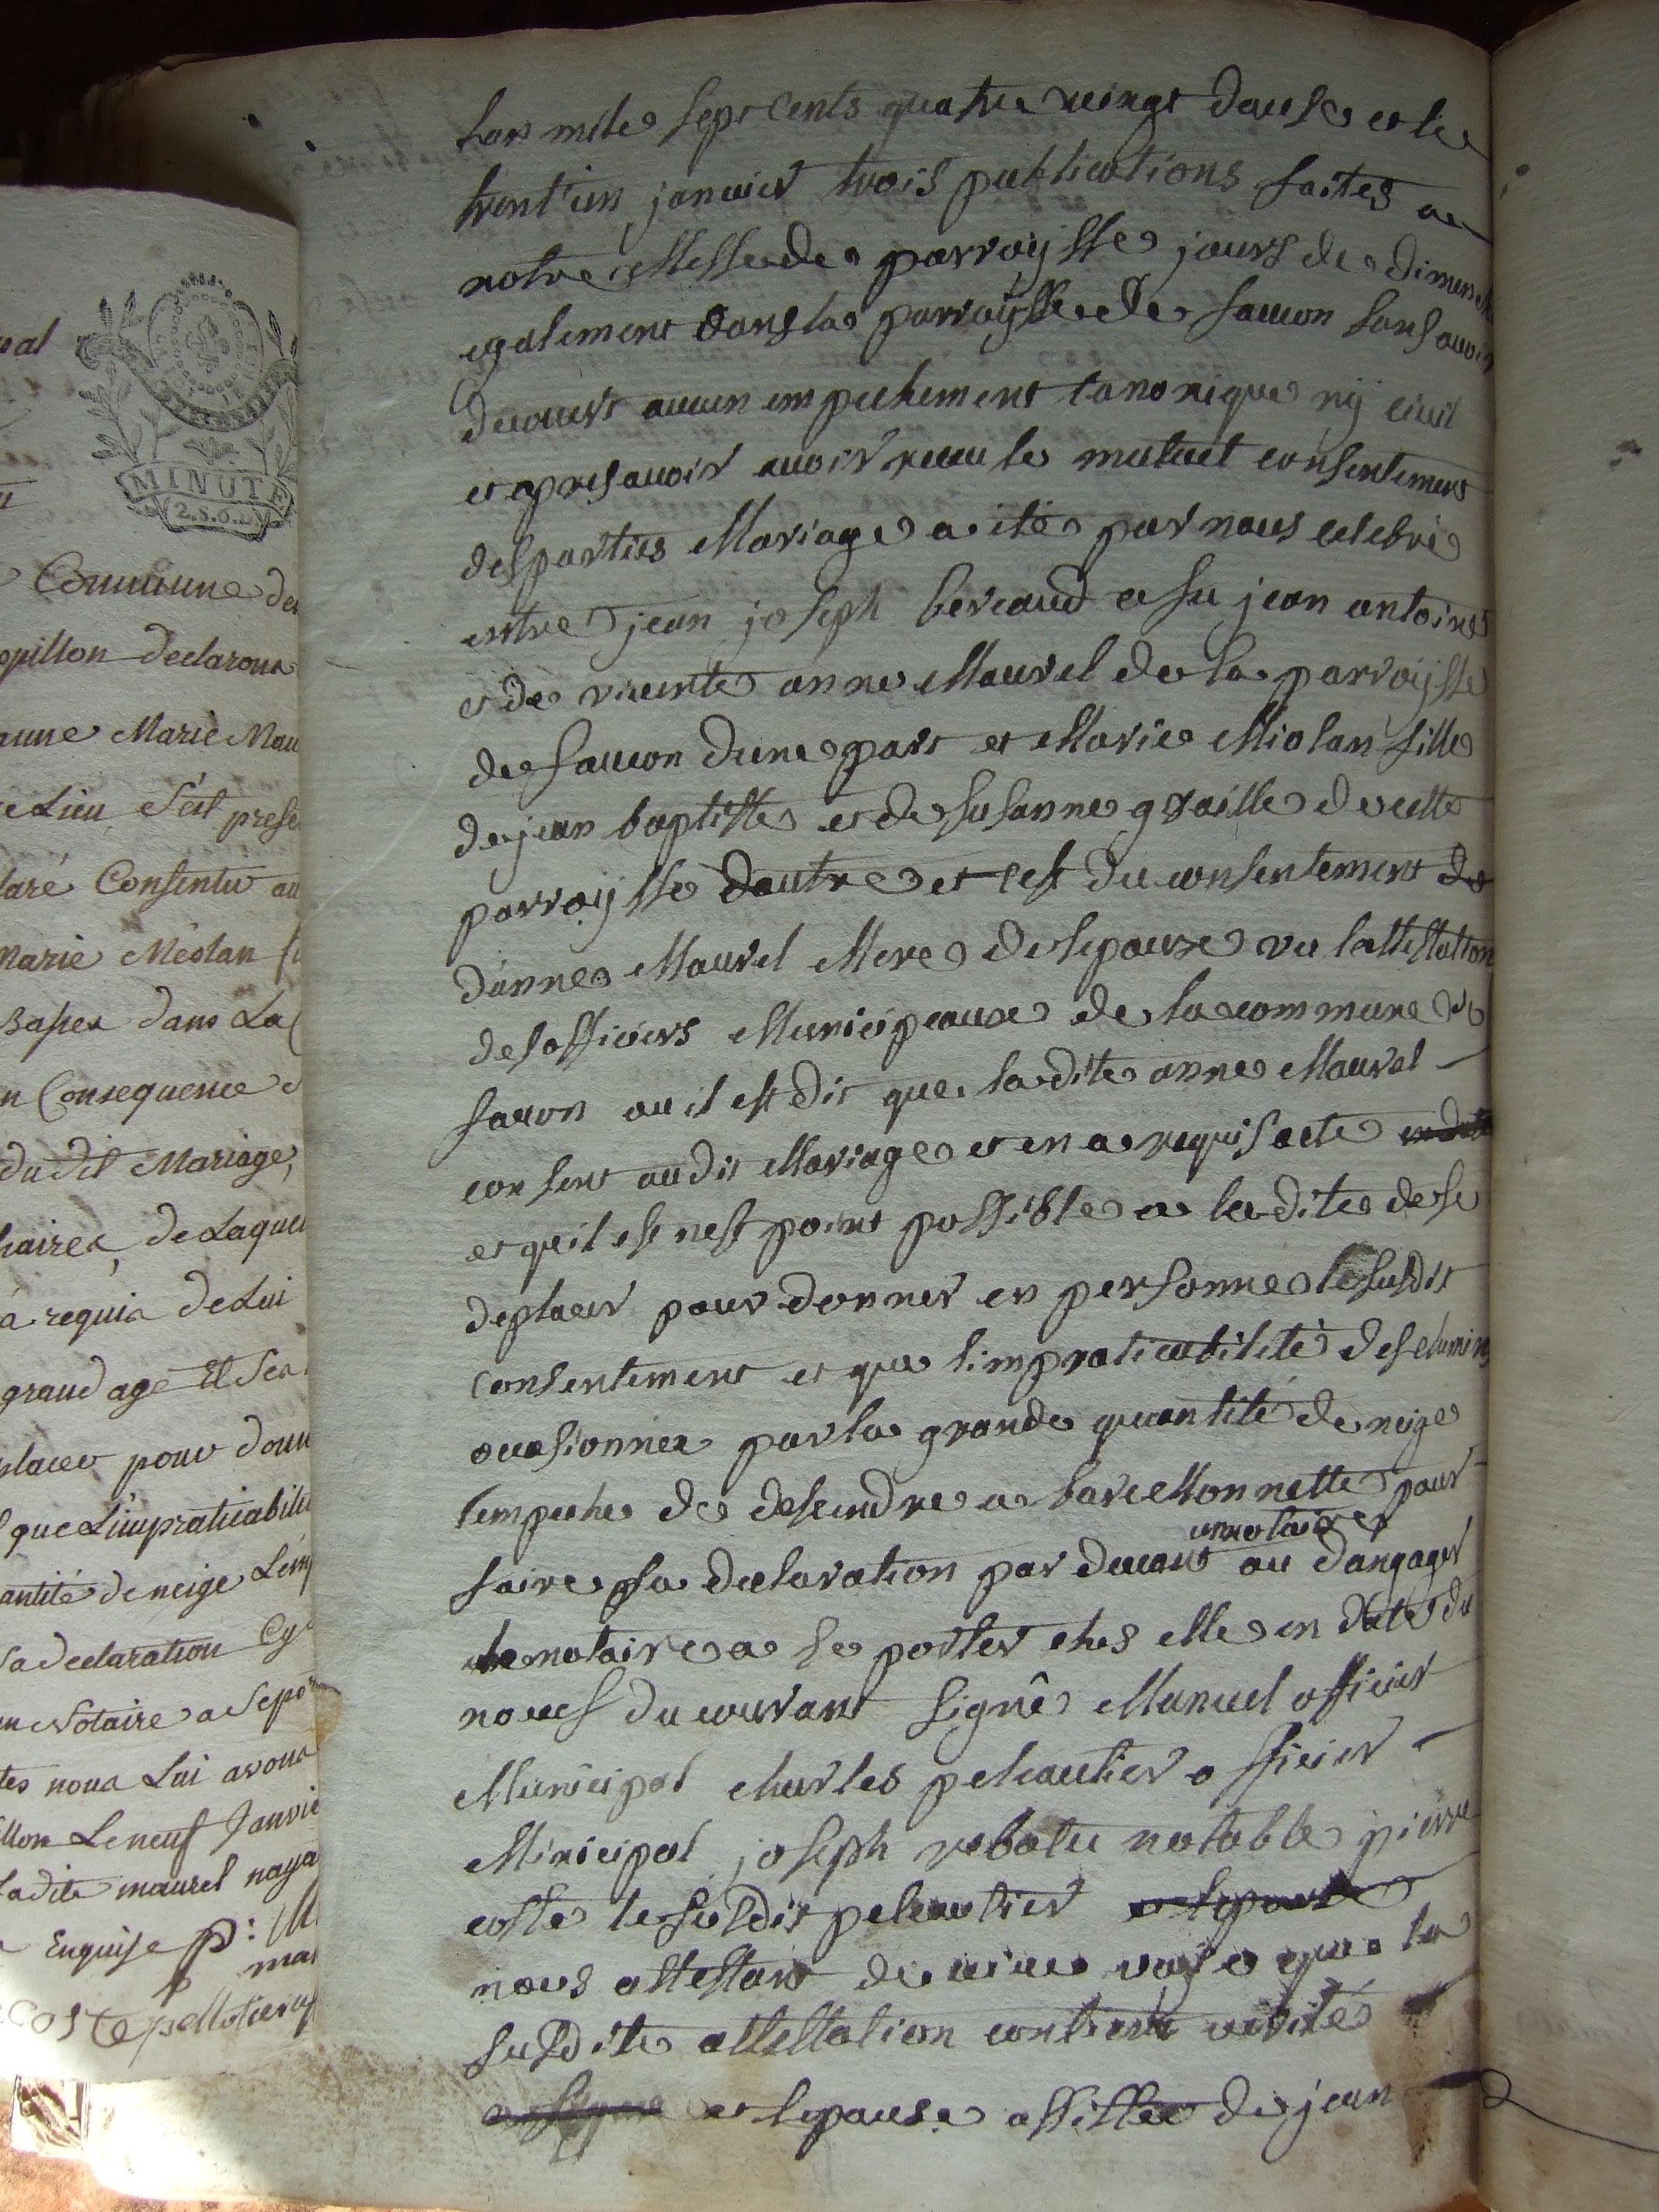 pal
MINUTE
2.S.6.D.
Commune de
opillon declarons
anne Marie Mau
ce Lieu s'est prese
laré Consentir au
Marie Méolan fi
passer dans La
n Consequence
dudit Mariage,
de Laquel
a requis de Lui
grand age Et ses
placer pour donn
que L'impraticabili
antité de neige L'em
sa declaration
un Notaire a se por
tes nous Lui avons
llon Le neuf Janvie
Ladite maurel naya
Enquise p: M
mar
COSTe pellotier
Lan mile sept Cents quatre veingt douse et le
trent'un janvier trois publications faites a
notre Messe de parroysse jours de dimench
egalement dans la parroysse de faucon sans avoir
decouvert aucun empechement canonique ny civil
et apres avoir avoir receu le mutuel consentement
des parties Mariage a ité par nous celebré
entre jean joseph bereaud a fu jean antoine
et de vivente anne Maurel de la parroysse
de faucon dune part et Marie Miolan fille
de jean baptiste et de susanne graille de cette
parroysse dautre et cest du consentement de
d'anne Maurel Mere de lepouze vu lattestation
des officiers Municipeaux de la commune de
faucon ou il est dit que ladite anne Maurel
consent audit Mariage et en a requis acte
et qu'il est nest point possible a ladite de se
deplacer pour donner en personne le susdit
consentement et que limpraticabilité des chemins
occasionnee par la grande quantité de neige
lempeche de desendre a barcellonnette pour
faire sa declaration par devant un notaire ou dangager
le notaire a se porter ches elle en date du
neuf du courant signê Manuel officier
Municipal charles peleautier officier
Minicipal joseph rebatu notable pierre
coste le susdit peleautier
nous attestant de vive voys que la
susdite attestation contient verité
et lepouse assistée de jean